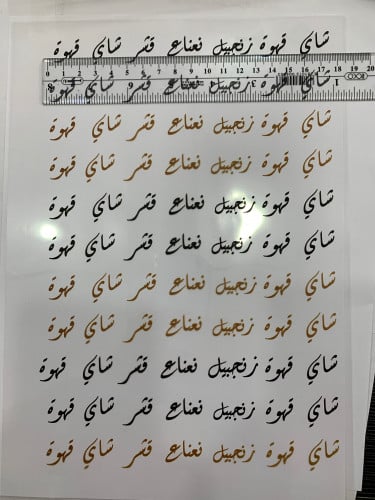 شاي قهوة زنجبيل نعناع قشر شاي قهوة
0 1 2 3 4 5 6 7 8 9 10 11 12 13 14 15 16 17 18 19 20
شاي قهوة زنجبيل نعناع قشر شاي قهوة
شاي قهوة زنجبيل نعناع قشر شاي قهوة
شاي قهوة زنجبيل نعناع قشر شاي قهوة
شاي قهوة زنجبيل نعناع قشر شاي قهوة
شاي قهوة زنجبيل نعناع قشر شاي قهوة
شاي قهوة زنجبيل نعناع قشر شاي قهوة
شاي قهوة زنجبيل نعناع قشر شاي قهوة
شاي قهوة زنجبيل نعناع قشر شاي قهوة
شاي قهوة زنجبيل نعناع قشر شاي قهوة
شاي قهوة زنجبيل نعناع قشر شاي قهوة